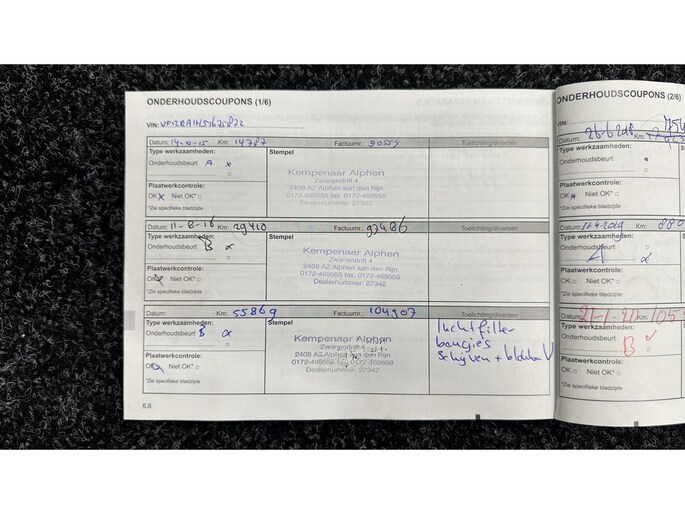 ONDERHOUDSCOUPONS (1/6)
VIN:
Datum: 14-10-15 Km: 14787 Factuurnr.: 90554 Toelichting/diversen
Type werkzaamheden: Stempel
Onderhoudsbeurt A x
Kempenaar Alphen
Zwanendrift 4
2408 AZ Alphen aan den Rijn
0172-469555 fax: 0172-469559
Dealernummer: 27342
Plaatwerkcontrole:
OK x Niet OK*
*Zie specifieke bladzijde
Datum: 11-8-16 Km: 29410 Factuurnr.: 97486 Toelichting/diversen
Type werkzaamheden: Stempel
Onderhoudsbeurt B x
Kempenaar Alphen
Zwanendrift 4
2408 AZ Alphen aan den Rijn
0172-469555 fax: 0172-469559
Dealernummer: 27342
Plaatwerkcontrole:
OK Niet OK*
*Zie specifieke bladzijde
Datum: Km: 55869 Factuurnr.: 104907 Toelichting/diversen
Type werkzaamheden: Stempel
Onderhoudsbeurt B x
Kempenaar Alphen
Zwanendrift 4
2408 AZ Alphen aan den Rijn
0172-469555 fax: 0172-469559
Dealernummer: 27342
luchtfilter
bougies
schijven + blokken V
Plaatwerkcontrole:
OK Niet OK*
*Zie specifieke bladzijde
6.8
ONDERHOUDSCOUPONS (2/6)
VIN:
Datum: Km:
Type werkzaamheden:
Onderhoudsbeurt
Plaatwerkcontrole:
OK Niet OK*
*Zie specifieke bladzijde
Datum: 11-4-2019 Km: 880
Type werkzaamheden:
Onderhoudsbeurt A
Plaatwerkcontrole:
OK Niet OK*
*Zie specifieke bladzijde
Datum: 21-1-21 Km: 105
Type werkzaamheden:
Onderhoudsbeurt B
Plaatwerkcontrole:
OK Niet OK*
*Zie specifieke bladzijde